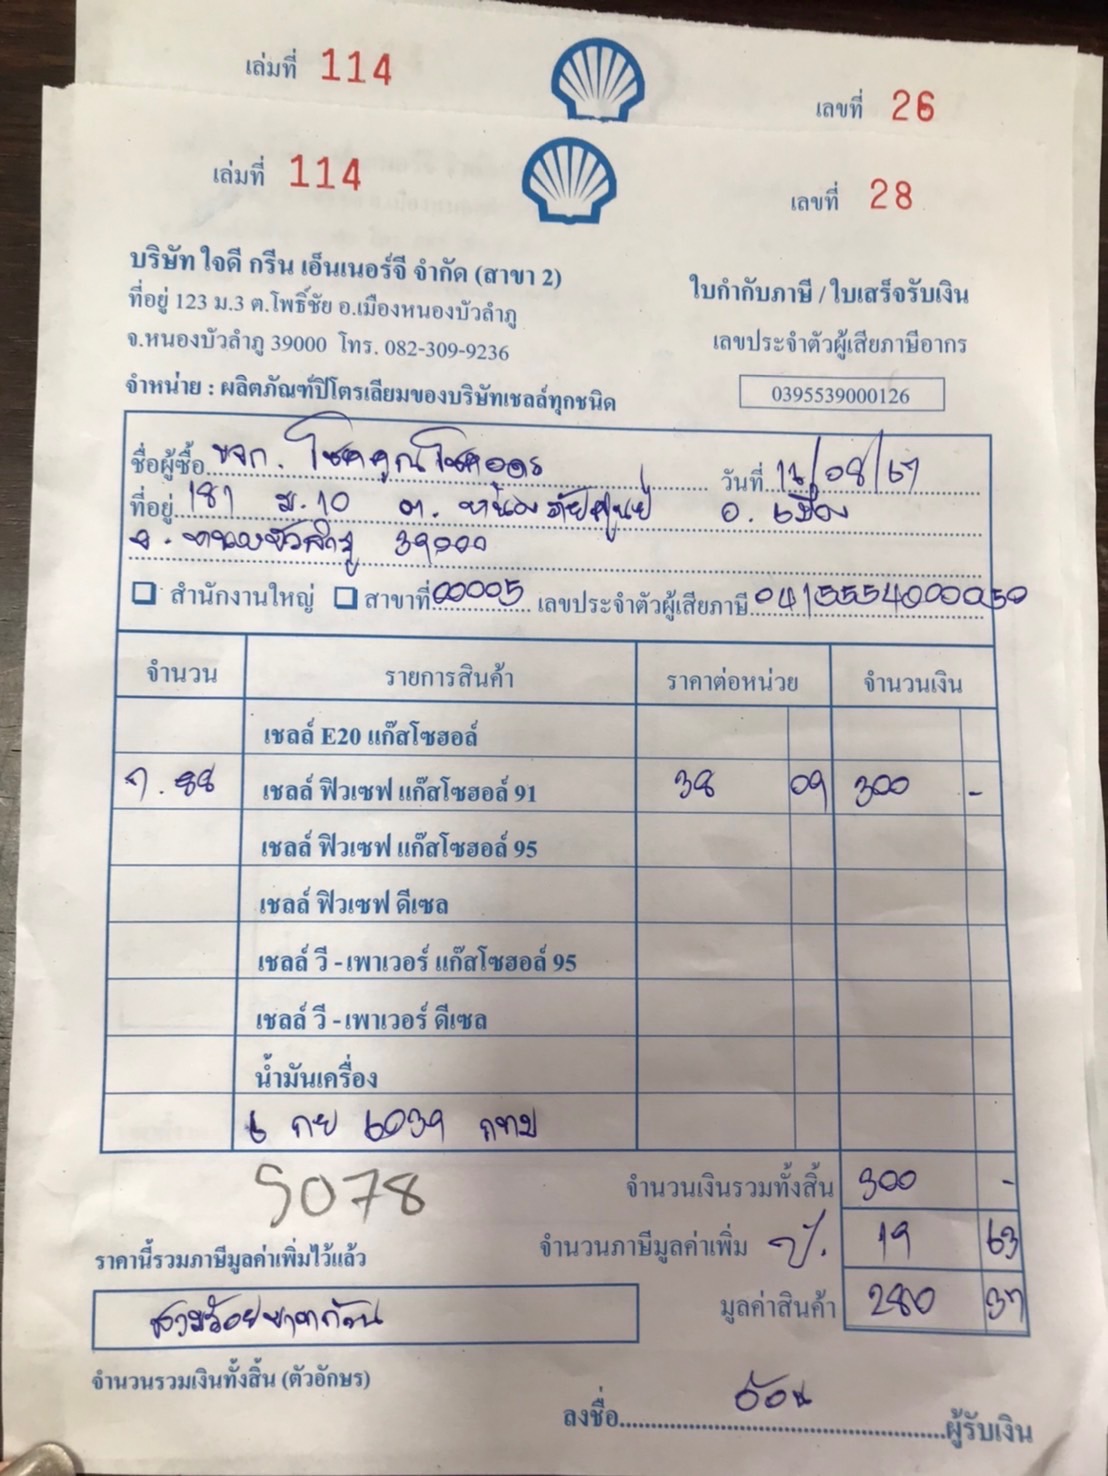 เล่มที่ 114 เลขที่ 26
เล่มที่ 114 เลขที่ 28
บริษัท ใจดี กรีน เอ็นเนอร์จี จำกัด (สาขา 2)
ที่อยู่ 123 ม.3 ต.โพธิ์ชัย อ.เมืองหนองบัวลำภู
จ.หนองบัวลำภู 39000 โทร. 082-309-9236
จำหน่าย : ผลิตภัณฑ์ปิโตรเลียมของบริษัทเชลล์ทุกชนิด
ใบกำกับภาษี / ใบเสร็จรับเงิน
เลขประจำตัวผู้เสียภาษีอากร
0395539000126
ชื่อผู้ซื้อ หจก. โชคคูณโชคอุดร วันที่ 12/08/67
ที่อยู่ 181 ม.10 ต. หนองภัยศูนย์ อ. เมือง
จ. หนองบัวลำภู 39000
สำนักงานใหญ่ สาขาที่ 00005 เลขประจำตัวผู้เสียภาษี 0415554000050
จำนวน รายการสินค้า ราคาต่อหน่วย จำนวนเงิน
เชลล์ E20 แก๊สโซฮอล์
7.88 เชลล์ ฟิวเซฟ แก๊สโซฮอล์ 91 38 09 300 -
เชลล์ ฟิวเซฟ แก๊สโซฮอล์ 95
เชลล์ ฟิวเซฟ ดีเซล
เชลล์ วี - เพาเวอร์ แก๊สโซฮอล์ 95
เชลล์ วี - เพาเวอร์ ดีเซล
น้ำมันเครื่อง
6 กย 6039 กทม
5078
จำนวนเงินรวมทั้งสิ้น 300 -
จำนวนภาษีมูลค่าเพิ่ม 19 63
ราคานี้รวมภาษีมูลค่าเพิ่มไว้แล้ว
มูลค่าสินค้า 280 37
สามร้อยบาทถ้วน
จำนวนรวมเงินทั้งสิ้น (ตัวอักษร)
ลงชื่อ ผู้รับเงิน